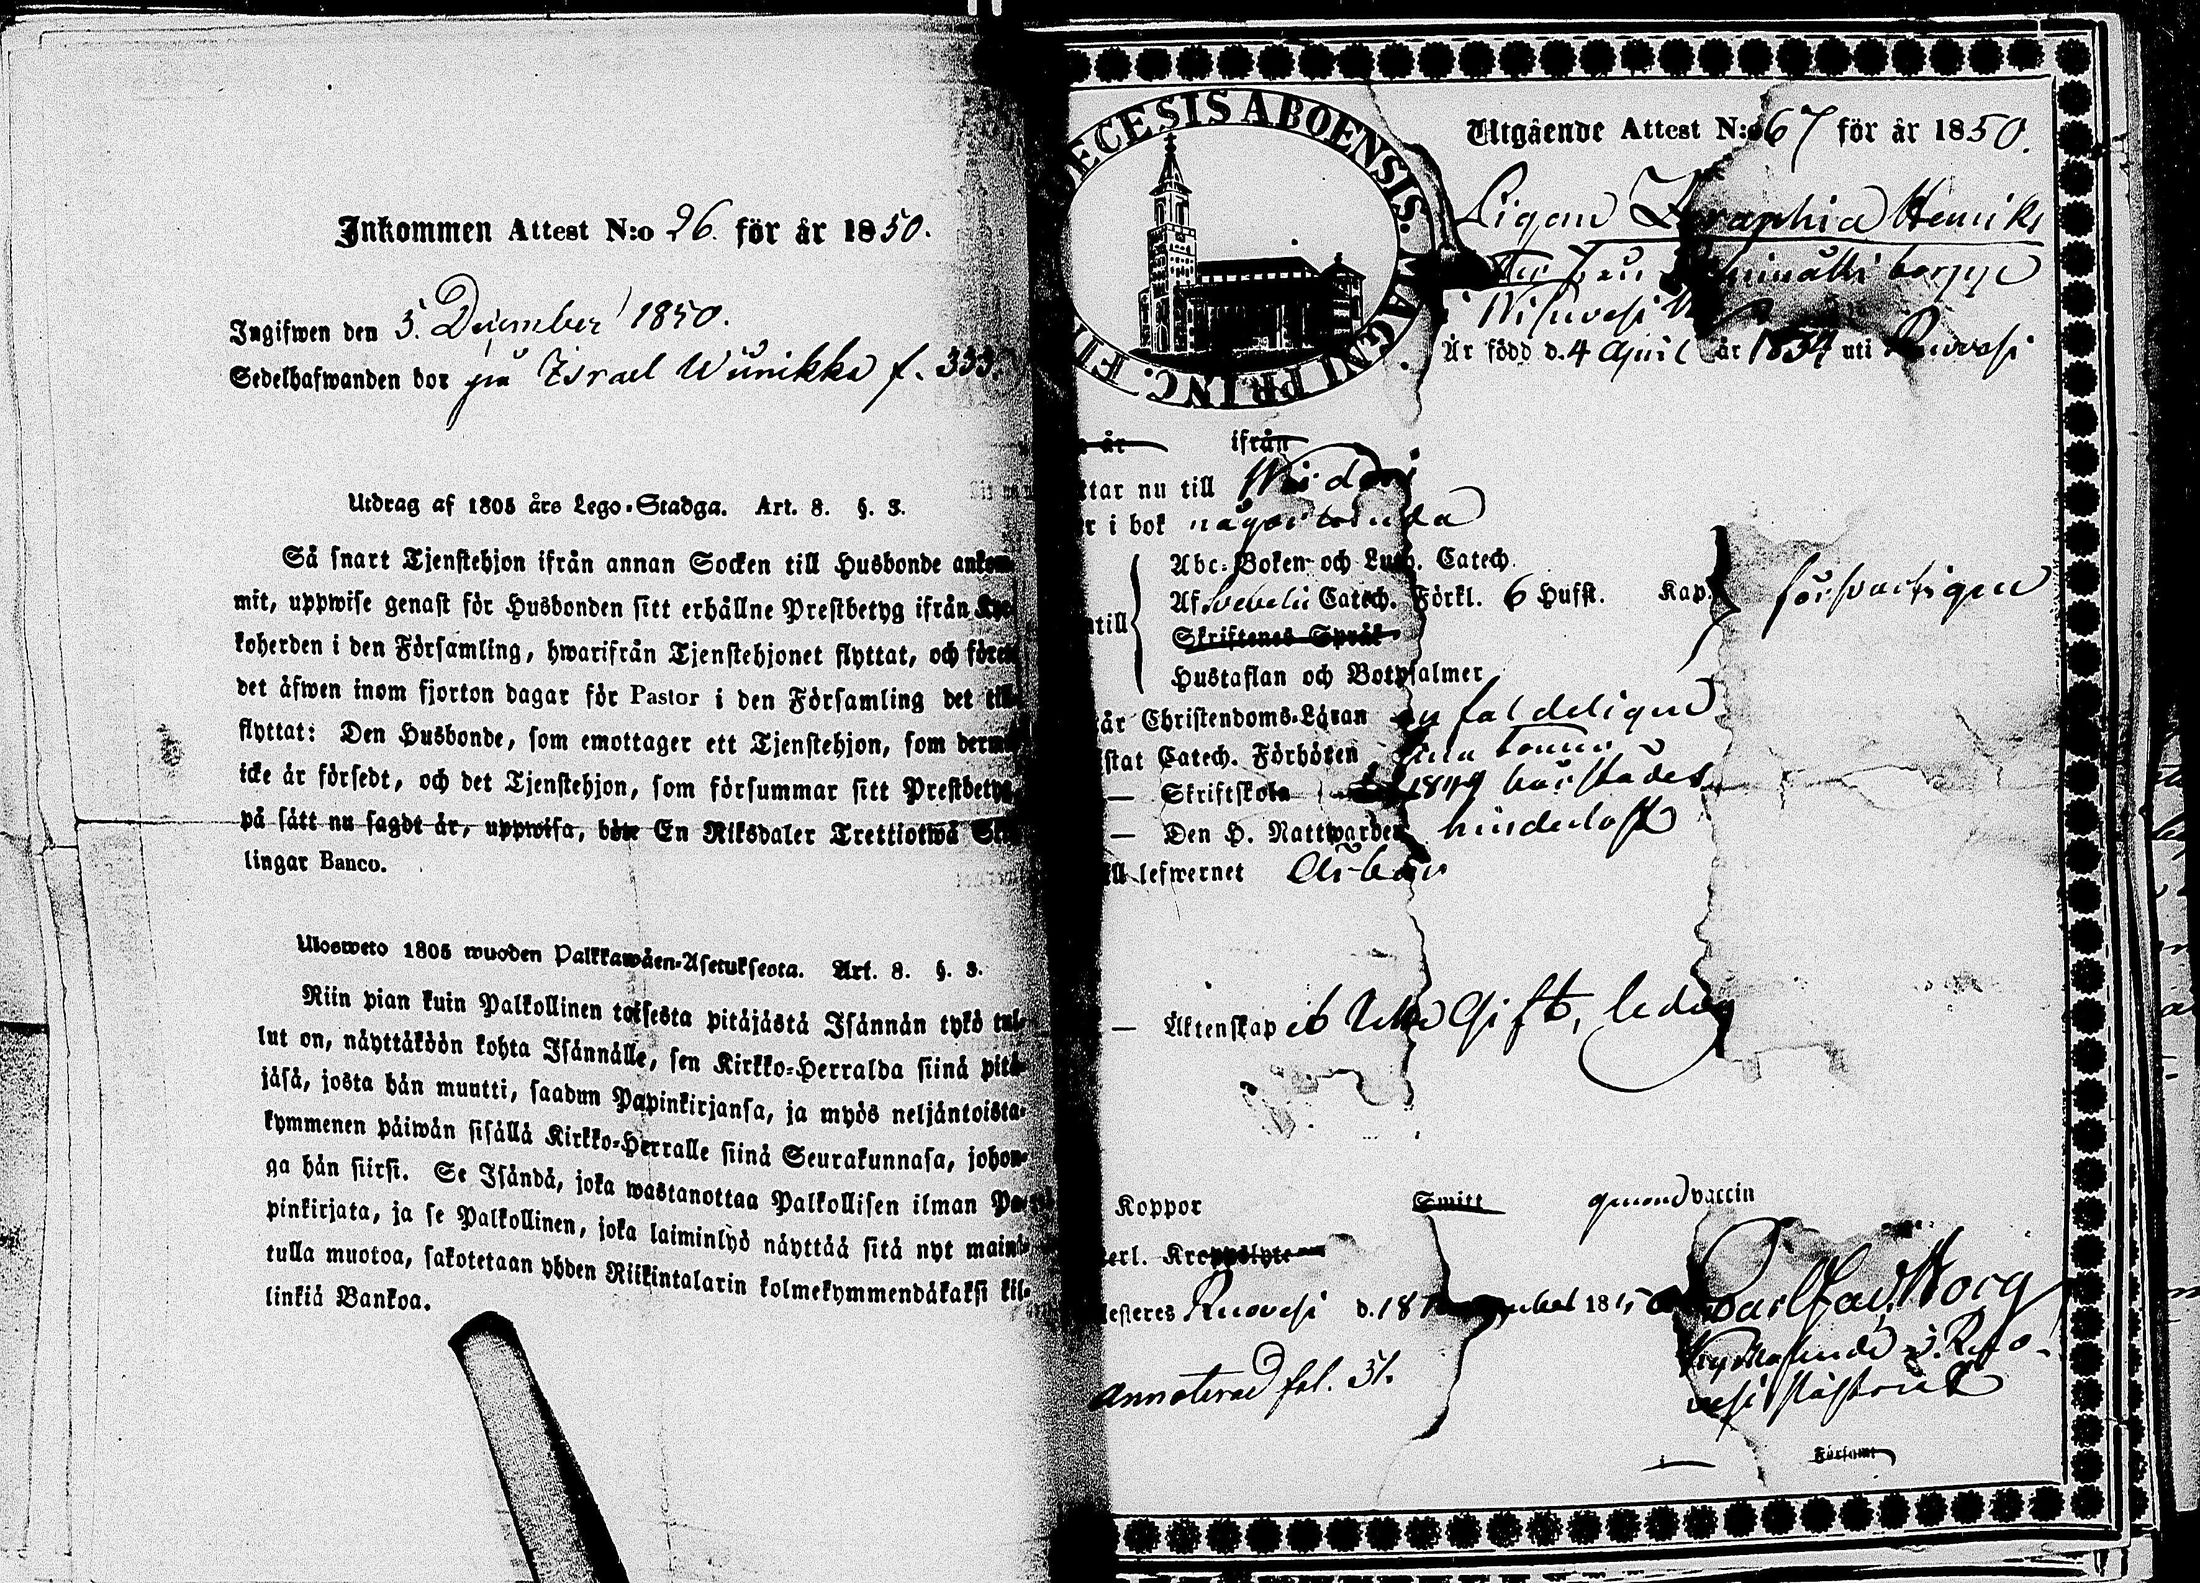 Inkommen Attest N:o 26. för år 1850.
Ingifwen den 5. December 1850.
Sedelhafwanden bor på Israel Wünikka f. 333.
Utdrag af 1805 års Lego-Stadga. Art. 8. §. 3.
Så snart Tjenstehjon ifrån annan Socken till Husbonde ankom-
mit, uppwise genast för Husbonden sitt erhållne Prestbetyg ifrån Kyr-
koherden i den Församling, hwarifrån Tjenstehjonet flyttat, och förete
det äfwen inom fjorton dagar för Pastor i den Församling det till-
flyttat: Den Husbonde, som emottager ett Tjenstehjon, som dermed
icke är försedt, och det Tjenstehjon, som försummar sitt Prestbetyg,
på sätt nu sagdt är, uppwisa, böte En Riksdaler Trettiotwå Skil-
lingar Banco.
Ulosweto 1805 wuoden Palkkawäen-Asetuksesta. Art. 8. §. 3.
Niin pian kuin Palkollinen toisesta pitäjästä Isännän tykö tul-
lut on, näyttäköön kohta Isännälle, sen Kirkko-Herralda siinä pitä-
jäsä, josta hän muutti, saadun Papinkirjansa, ja myös neljäntoista-
kymmenen päiwän sisällä Kirkko-Herralle siinä Seurakunnasa, johon-
ga hän siirsi. Se Isändä, joka wastanottaa Palkollisen ilman Pa-
pinkirjata, ja se Palkollinen, joka laiminlyö näyttää sitä nyt maini-
tulla muotoa, sakotetaan yhden Riikintalarin kolmekymmendäkaksi kil-
linkiä Bankoa.
DECESIS ABOENSIS. MAGNI PRINC. FI
Utgående Attest N:o 67 för år 1850.
Pigan Henriks
i Wiluvesi
Är född d. 4 April år 1834 uti Ruovesi
år ifrån
ttar nu till
r i bok
Abc-Boken och Luth. Catech.
Af Svebelii Catech. Förkl. 6 Hufst. Kap. försvarligen
ntill
Skriftenes Språk
Hustaflan och Botpsalmer
tår Christendoms-Läran enfaldeligen
istat Catech. Förhören
— Skriftskola 1849 börjades
— Den H. Nattwarden
ll lefwernet ärbar
— Äktenskap Gift, ledig
Koppor Smitt genom vaccin
erl. Kroppslyte
testeres Ruovesi d. 18 1850
Annoterad fol. 51.
Församl